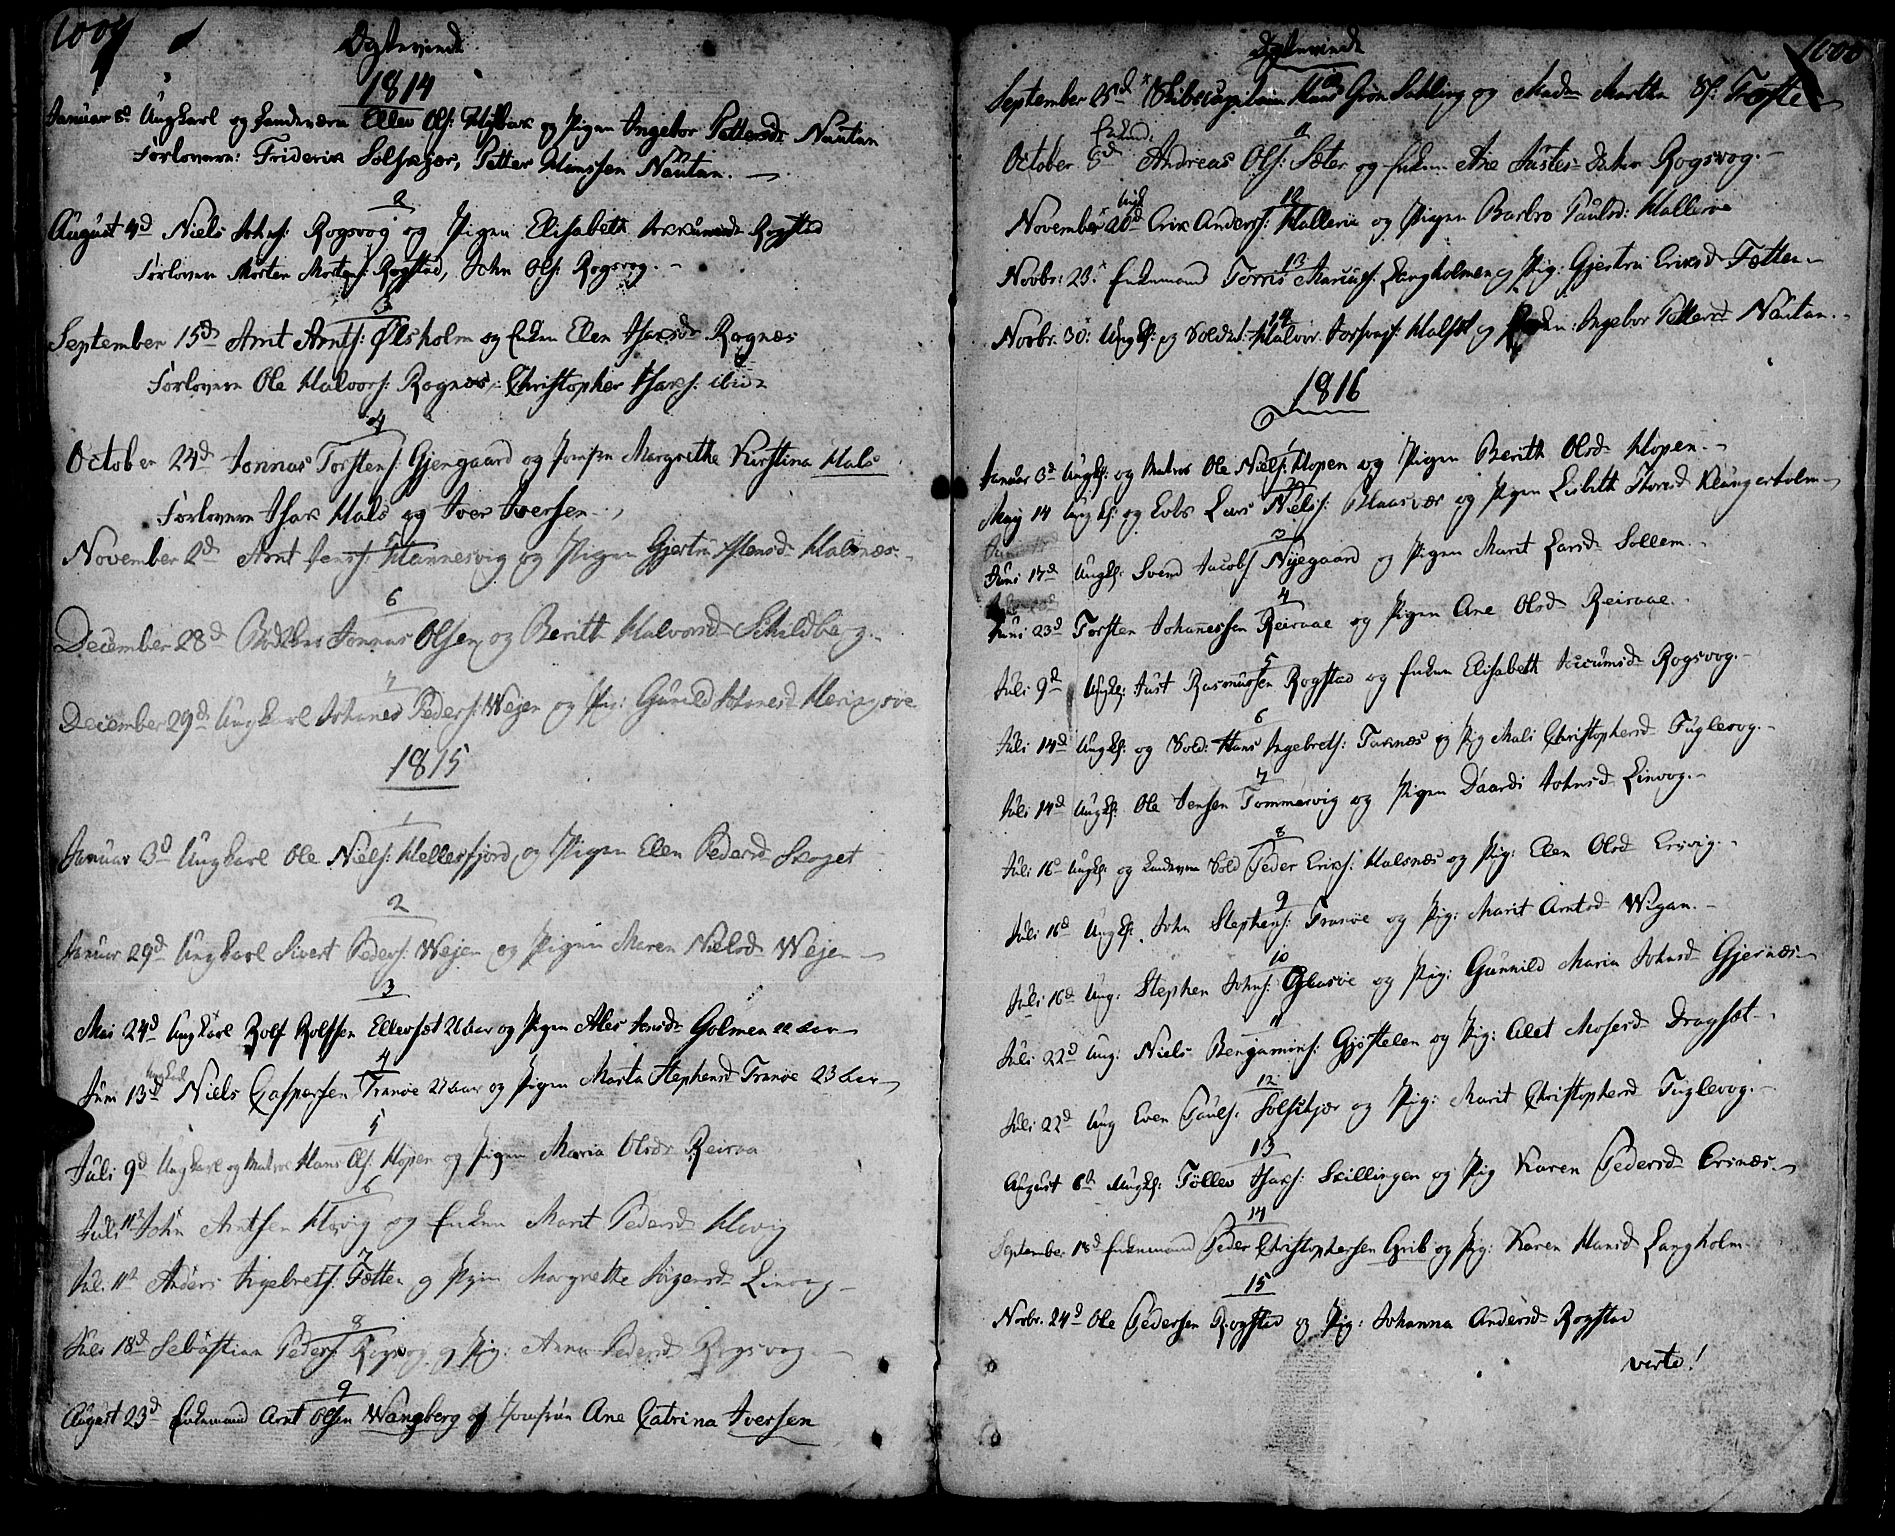 Ægteviede
1814
Januar 8d Ungkarl og Landeværn Ellev Ols: og Pigen Ingebor Pettersdr Nautan
Forlovere: Friderik Solskjær, Petter Nautan.
2
August 4d Niels Johns: Rogsvog og Pigen Elisabeth Rogstad
Forlovere Morten Mortens: Rogstad, John Ols: Rogsvog.
3
September 15d Arnt Arnts: Ølsholm og Enken Elen Isaksdr Rognæs
Forlovere Ole Halvors: Rognæs, Christopher Isaks: ibid
4
October 24d Jonnas Torstens: Gjengaard og Jomfru Margrethe Kirstina Hals
Forlovere Isak Hals og Iver Iversen
5
November 2d Arnt Jens: Hannesvig og Pigen Gjertru Halsnæs
6
December 28d Jonnas Olsen og Berith Halvorsd Schildberg
7
December 29d Ungkarl Johanes Peders: Wejen og Pig: Gunild Johanesd
1815
1
Januar 3d Ungkarl Ole Niels: Hellesfjord og Pigen Elen Pedersd Skoget
2
Januar 29d Ungkarl Sivert Peders: Wejen og Pigen Maren Nielsd Wejen
3
Mai 24d Ungkarl Rolf Rolfsen Ellevset 26 Aar og Pigen Ales Golmen 22 Aar
4
Juni 13d Ungkarl Niels Caspersen Tranöe 27 Aar og Pigen Marta Stephensd Tranöe 23 Aar
5
Juli 9d Ungkarl og Matros Hans Ols: Hopen og Pigen Maria Olsdr Reiraa
6
Juli 11d John Arntsen og Enken Marit Pedersd
7
Juli 11d Anders Ingebrets: Fætten og Pigen Margrette Linvog
8
Juli 18d Sebastian Peders: Rogsvog og Pig: Anna Pedersd Rogsvog
9
August 23d Enkemand Arnt Olsen Wangberg og Jomfrue Ane Catrina Iversen
Ægteviede
1000
10
September 25d Skibscapitain Hans Grön Sahling og Madm Martha Sf: Tofte
11
October 8d Enkem: Andreas Ols: Sæter og Enken Ane Rogsvog.
12
November 20d Ungk Erik Anders: Hallerøe og Pigen Barbro Paulsd: Hallerøe
13
Novbr: 23: Enkemand Torris Langholmen og Pig: Gjertru Eriksd Fætten
14
Novbr. 30: Ungk: og Soldat: Halvor og Enken: Ingebor Pettersd Nautan.
1816
1
Januar 3d Ungk: og Matros Ole Niels: Hopen og Pigen Berith Olsd Hopen.
2
May 14 Ungk: og Lods Lars Niels: Blaasvær og Pigen Lisbeth Klungerholm
3
Juni 13d Ungk: Svend Jacobs Nyegaard og Pigen Marit Larsd Sollem.
4
Juni 23d Torsten Johanessen Reiraae og Pigen Ane Olsd Reiraae.
5
Juli 9d Ungk: Just Rasmussen Rogstad og Enken Elisabeth Rogsvog.
6
Juli 14d Ungk: og Sold: Hans Ingebrets: Taknæs og Pig Mali Christophersd Fuglevog.
7
Juli 14d Ungk: Ole Jensen Tommervig og Pigen Daardi Johnsd Linvog.
8
Juli 16d Ungk: og Landeværn Sold Peder Eriks: Halsnæs og Pig: Elen Olsd Ersvig.
9
Juli 16d Ungk: John Stephens: Tranöe og Pig: Marit Arntsd Wigan.
10
Juli 16d Ung: Stephen Johns: og Pig: Gunnild Maria Johnsd Gjernæs
11
Juli 22d Ung: Niels Benjamins: Gjøstelen og Pig: Alet Mosesd Dragset
12
Juli 22d Ung Even Pauls: Solskjær og Pig: Marit Christophersd Fuglevog.
13
August 6d Ungk: Tollev Isaks: Skillingen og Pig Karen Pedersd Ersnæs
14
September 18d Enkemand Peder Christophersen Grib og Pig: Karen Hansd Langholm
15
Novbr. 24d Ole Pedersen Rogstad og Pig: Johanna Andersd Rogstad
verte!